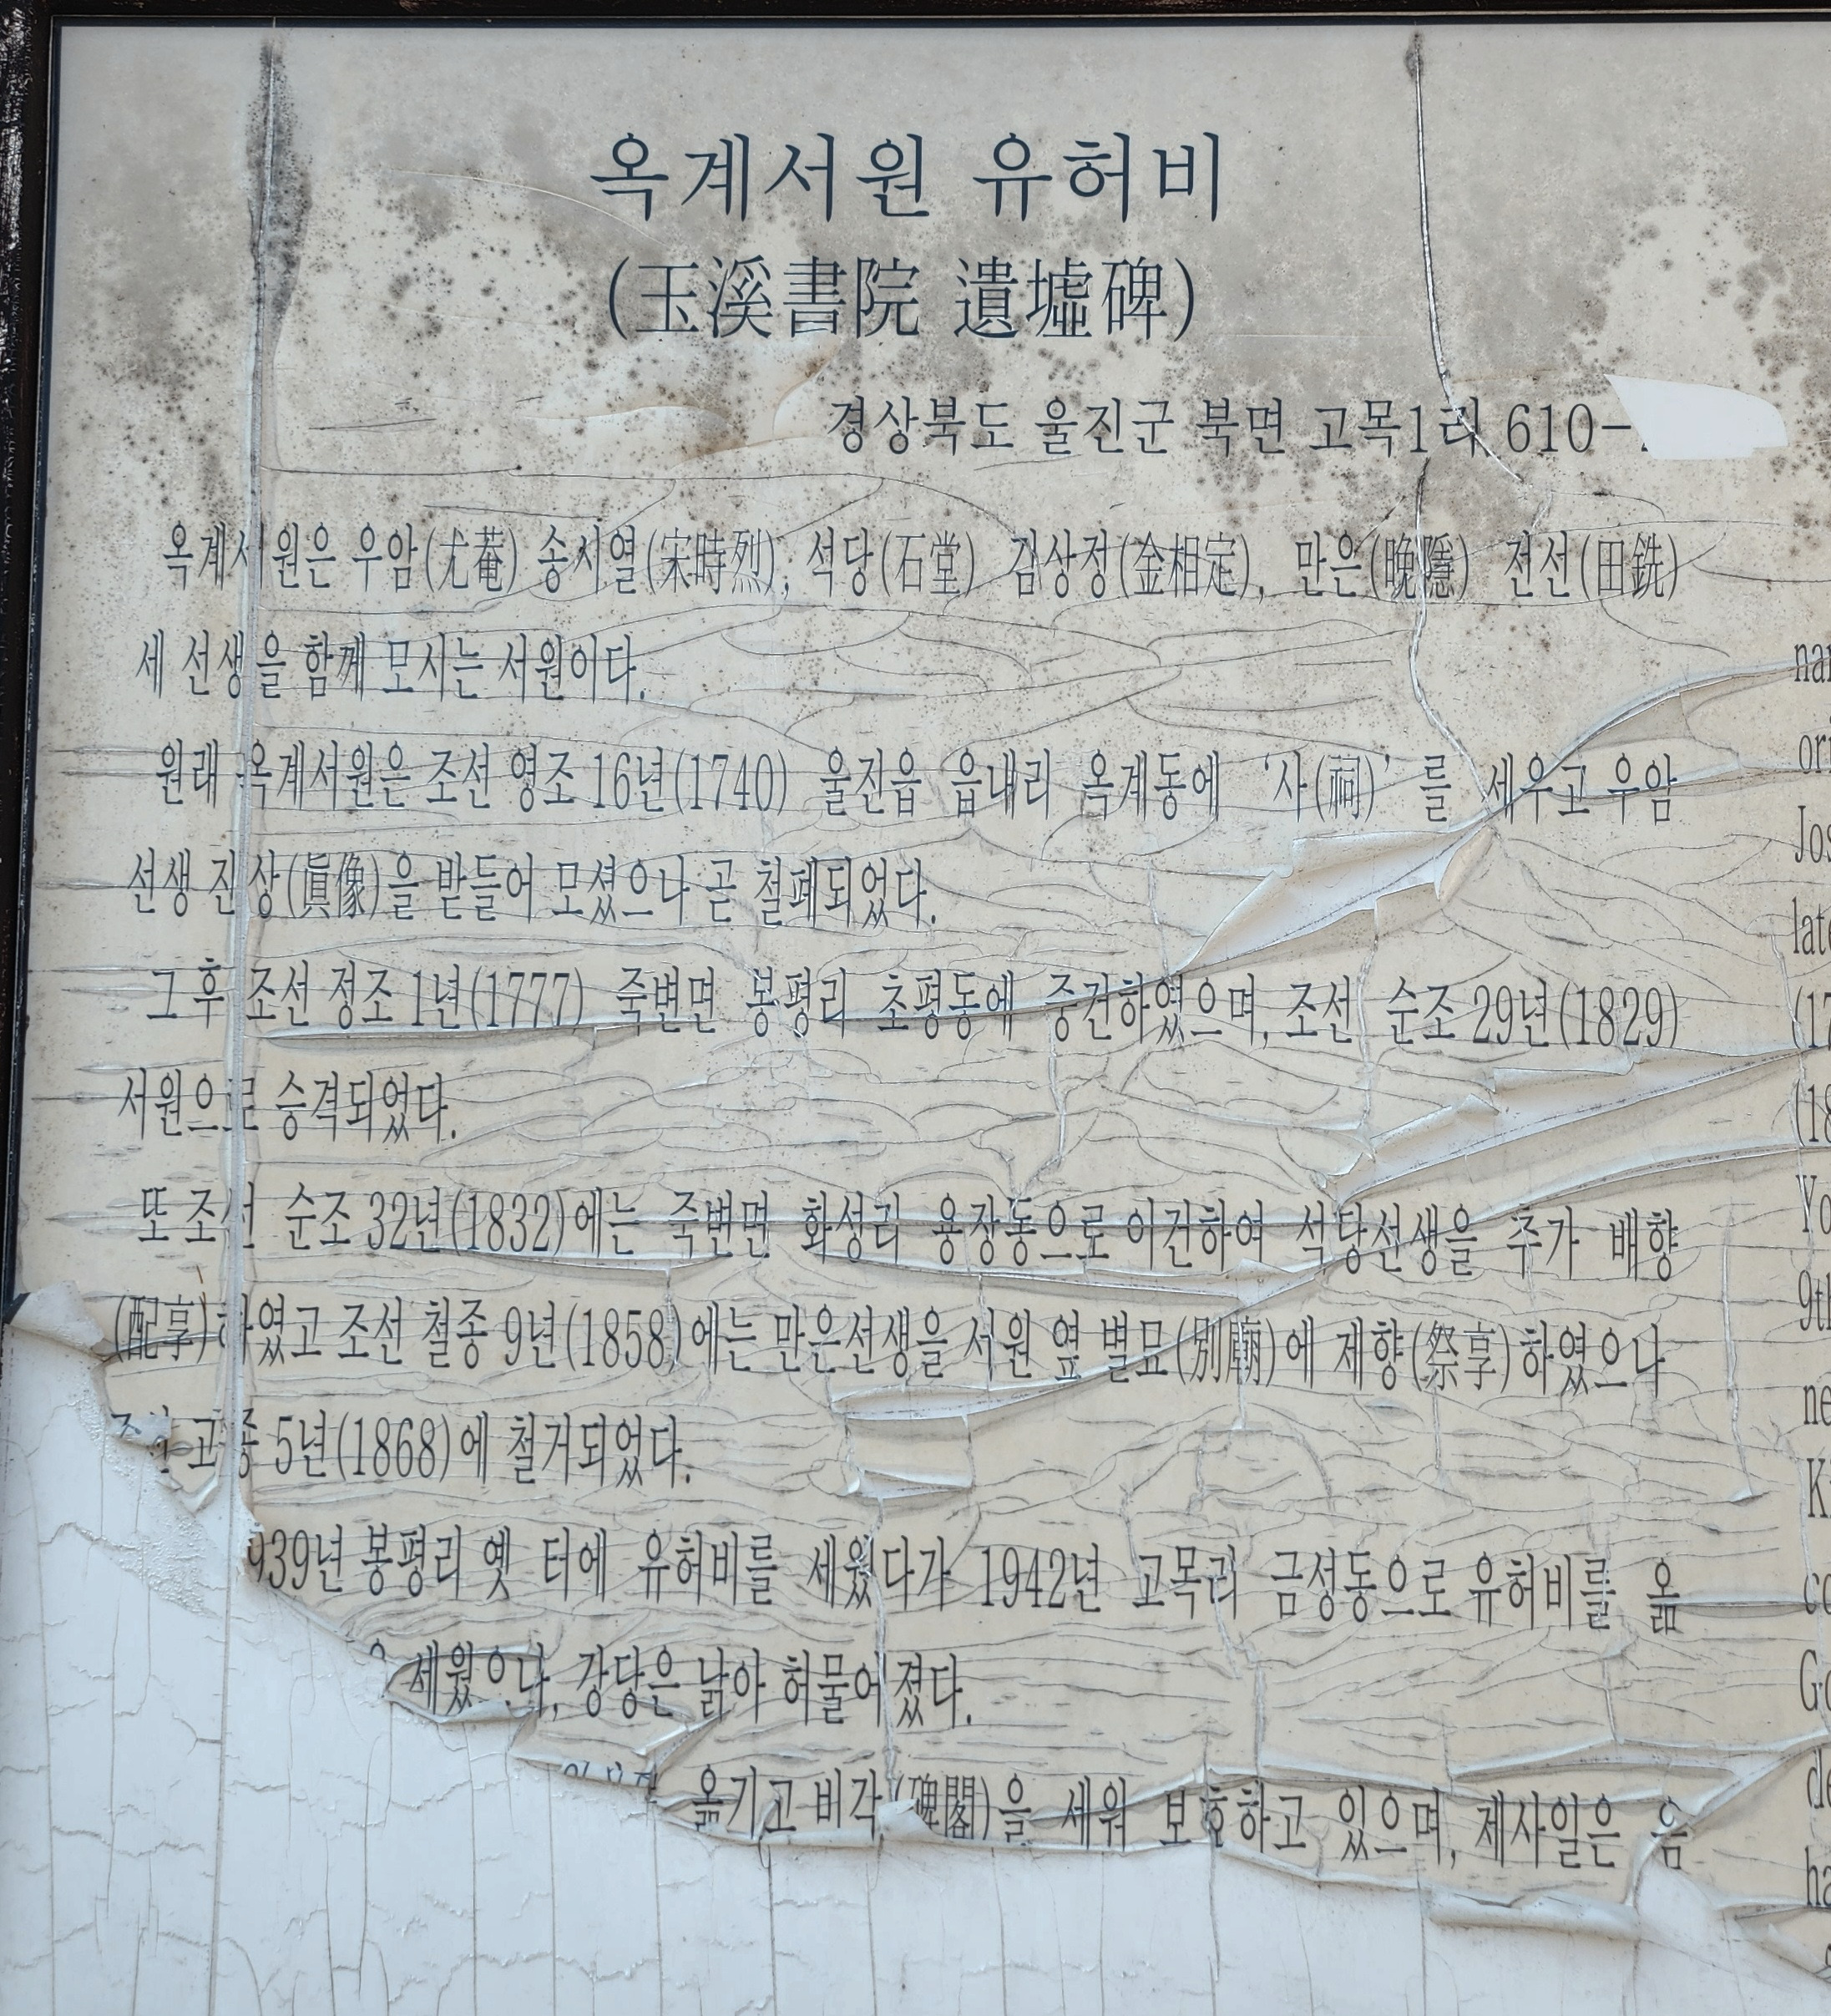 옥계서원 유허비
(玉溪書院 遺墟碑)
경상북도 울진군 북면 고목1리 610-
옥계서원은 우암(尤菴) 송시열(宋時烈), 석당(石堂) 김상정(金相定), 만은(晩隱) 전선(田銑)
세 선생을 함께 모시는 서원이다.
원래 옥계서원은 조선 영조 16년(1740) 울진읍 읍내리 옥계동에 '사(祠)'를 세우고 우암
선생 진상(眞像)을 받들어 모셨으나 곧 철폐되었다.
그 후 조선 정조 1년(1777) 죽변면 봉평리 초평동에 중건하였으며, 조선 순조 29년(1829)
서원으로 승격되었다.
또 조선 순조 32년(1832)에는 죽변면 화성리 용장동으로 이건하여 석당선생을 추가 배향
(配享)하였고 조선 철종 9년(1858)에는 만은선생을 서원 옆 별묘(別廟)에 제향(祭享)하였으나
고종 5년(1868)에 철거되었다.
939년 봉평리 옛 터에 유허비를 세웠다가 1942년 고목리 금성동으로 유허비를 옮
세웠으나, 강당은 낡아 허물어졌다.
옮기고 비각(碑閣)을 세워 보호하고 있으며, 제사일은 음